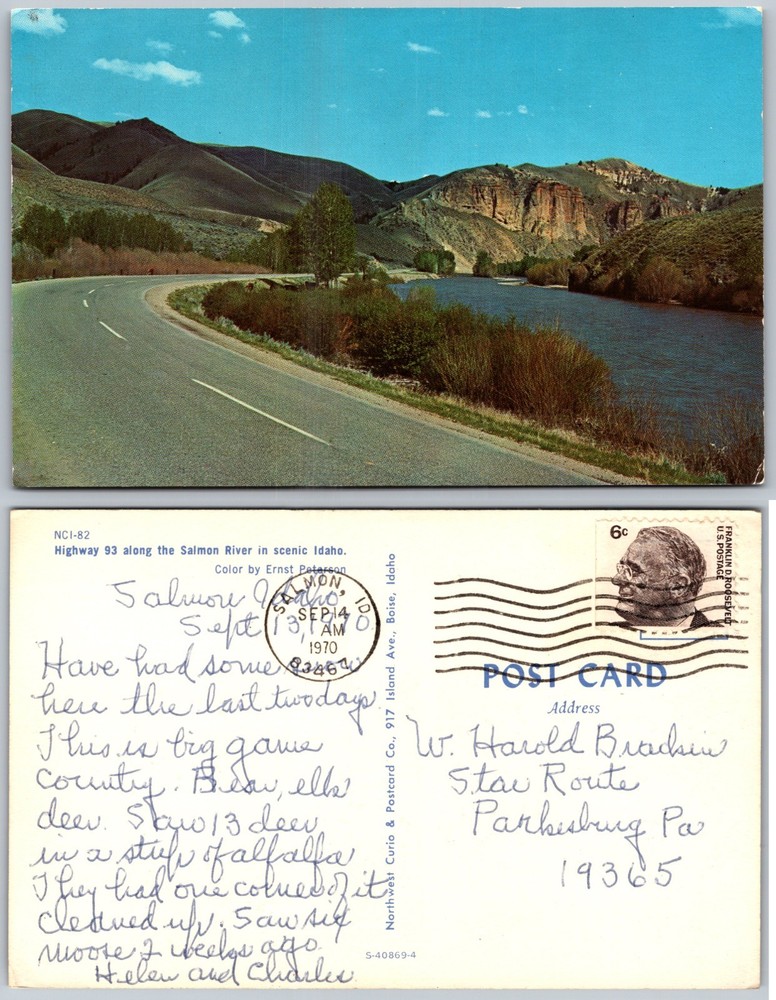 NCI-82
Highway 93 along the Salmon River in scenic Idaho.
Color by Ernst Peterson
Salmon Idaho
Sept 13, 1970
Have had some snow
here the last two days.
This is big game
country. Bear, elk
deer. Saw 13 deer
in a strip of alfalfa
They had one corner of it
cleaned up. Saw six
moose 2 weeks ago
Helen and Charles
SALMON, ID
SEP 14
AM
1970
83467
Northwest Curio & Postcard Co., 917 Island Ave., Boise, Idaho
S-40869-4
6c
FRANKLIN D. ROOSEVELT
U.S. POSTAGE
POST CARD
Address
W. Harold
Star Route
Parkesburg Pa
19365